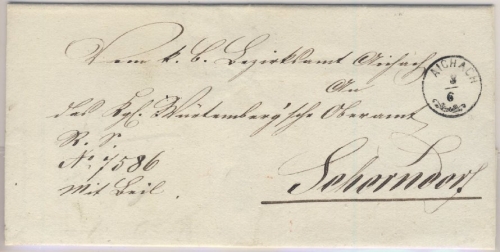 Vom k. b. Bezirksamt Aichach
An
das Kgl. Würtemberg'sche Oberamt
R. S.
No. 7586
Mit Beil.
Schorndorf
AICHACH
8
6